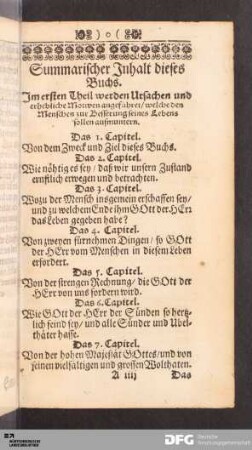 ) o (
Summarischer Inhalt dieses
Buchs.
Im ersten Theil werden Ursachen und
erhebliche Motiven angeführet/ welche den
Menschen zur Besserung seines Lebens
sollen auffmuntern.
Das 1. Capitel.
Von dem Zweck und Ziel dieses Buchs.
Das 2. Capitel.
Wie nöhtig es sey/ daß wir unsern Zustand
ernstlich erwegen und betrachten.
Das 3. Capitel.
Wozu der Mensch insgemein erschaffen sey/
und zu welchem Ende ihm GOtt der HErr
das Leben gegeben habe?
Das 4. Capitel.
Von zweyen fürnehmen Dingen/ so GOtt
der HErr vom Menschen in diesem Leben
erfordert.
Das 5. Capitel.
Von der strengen Rechnung/ die GOtt der
HErr von uns fordern wird.
Das 6. Capitel.
Wie GOtt der HErr der Sünden so hertz-
lich feind sey/ und alle Sünder und Übel-
thäter hasse.
Das 7. Capitel.
Von der hohen Majestät GOttes/ und von
seinen vielfältigen und grossen Wolthaten.
A iiij Das
DFG